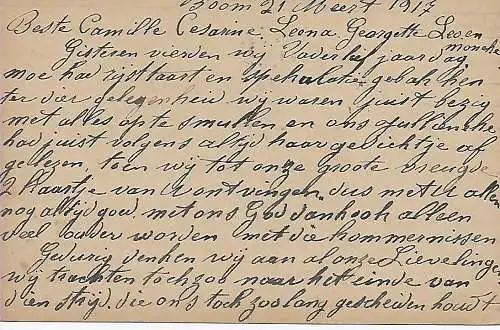 Boom 21 Meert 1917
Beste Camille Cesarine, Leona, Georgette Leo en
monche
Gisteren vierden wij Vaderlief jaardag
moe had rijstlaart en spekulatie gebak ken
ter dier gelegenheid wij waren juist bezig
met alles op te smullen en ons Julianche
had juist volgens altijd haar gedichtje af
gelezen, toen wij tot onze groote vreugde
2 kaartje van U ontvingen. dus met U allen
nog altijd goed. met ons God dank ook alleen
veel ouder worden met die kommernissen
Gedurig denken wij aan al onze Lieveling
wij trachten toch zoo naar het einde van
dien strijd, die ons toch zoo lang gescheiden houdt